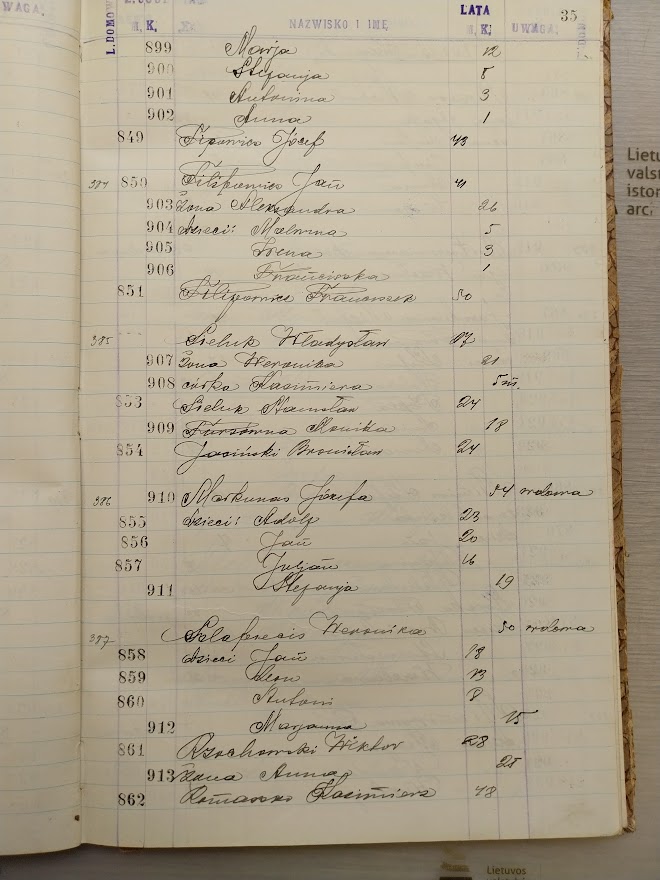 WAGA.
L. DOMOW
NAZWISKO I IMĘ
LATA
M. K.
UWAGA.
35
899 Marja 12
900 Stefanja 8
901 Antonina 3
902 Anna 1
849 Józef 43
384 850 Jan 41
903 Żona Aleksandra 26
904 dzieci: Malwina 5
905 Irena 3
906 Franciszka 1
851 Filipowicz Franciszek 50
385 Sieluk Władysław
907 Żona Weronika 21
908 córka Kazimiera 5 m.
853 Sieluk Stanisław 24
909 Monika 18
854 Jasiński Bronisław 24
386 910 Markunas Józefa 54 wdowa
855 dzieci: Adolf 23
856 Jan 20
857 Juljan 16
911 Stefanja 19
387 Weronika 50 wdowa
858 dzieci Jan 18
859 Leon 13
860 Antoni 8
912 Marjanna 15
861 Rzochowski Wiktor 28
913 Żona Anna 25
862 Kazimierz 48
Lietu
valst
istor
arc
Lietuvos